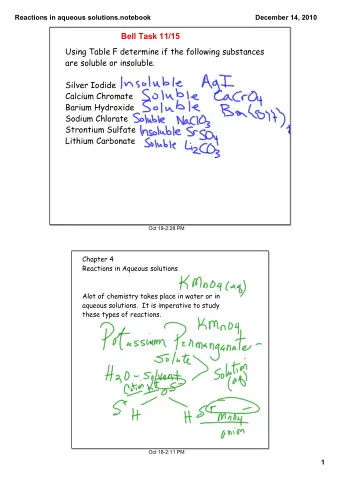 Reactions in aqueous solutions.notebook
December 14, 2010
Bell Task 11/15
Using Table F determine if the following substances
are soluble or insoluble.
Silver Iodide Insoluble AgI
Calcium Chromate Soluble CaCrO4
Barium Hydroxide Soluble Ba(OH)2
Sodium Chlorate Soluble NaClO3
Strontium Sulfate Insoluble SrSO4
Lithium Carbonate Soluble Li2CO3
Oct 18-2:28 PM
Chapter 4
Reactions in Aqueous solutions
KMnO4(aq)
Alot of chemistry takes place in water or in
aqueous solutions. It is imperative to study
these types of reactions.
KMnO4
Potassium Permanganate -
Solute
H2O - Solvent
Solution
(aq)
Cation K+
H H
MnO4
anion
Oct 18-2:11 PM
1